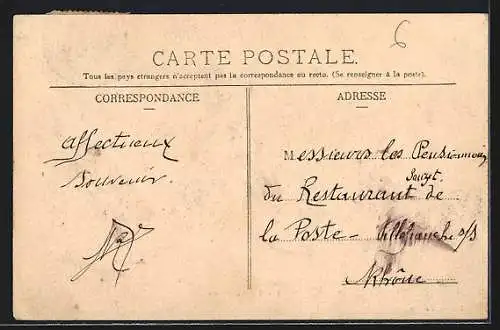 6
CARTE POSTALE.
Tous les pays étrangers n'acceptent pas la correspondance au recto. (Se renseigner à la poste).
CORRESPONDANCE
ADRESSE
affectueux
souvenir.
Messieurs les Pensionnaires
du Restaurant de
la Poste - Villefranche s/S
Rhône